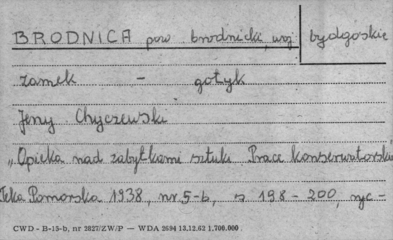 BRODNICA pow. brodnicki, woj. bydgoskie
zamek - gotyk
Jerzy Chyczewski
„Opieka nad zabytkami sztuki. Prace konserwatorskie
Teka Pomorska 1938, nr. 5-6, s. 198-200, ryc-
CWD - B-15-b, nr 2827/ZW/P — WDA 2694 13.12.62 1.700.000